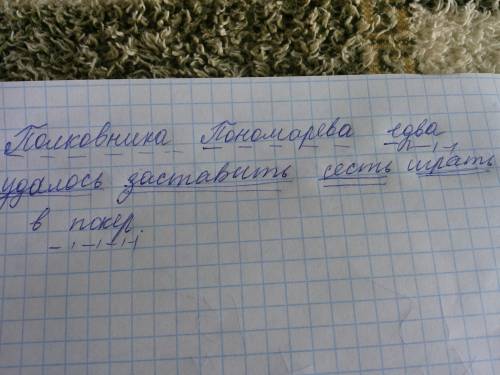 Полковника Пономарева едва
удалось заставить сесть играть
в покер.